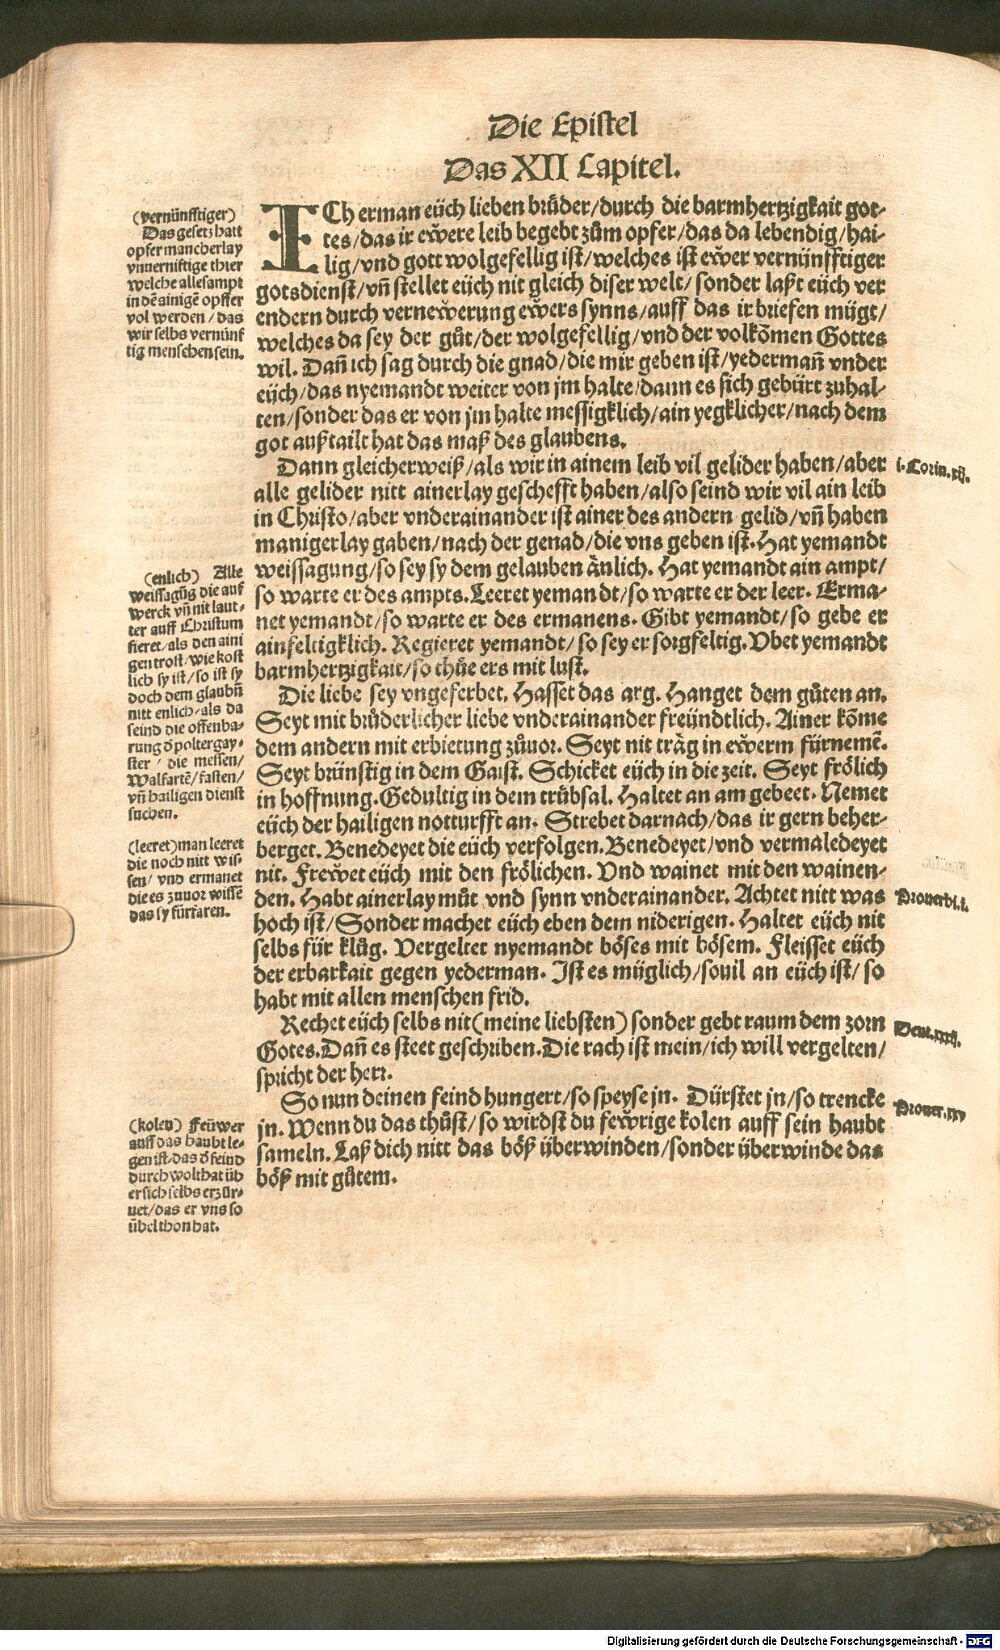 Die Epistel
Das XII Capitel.
ICh erman eüch lieben brüder/durch die barmhertzigkait got-
tes/das ir eẅere leib begebt zům opfer/das da lebendig/hai-
lig/vnd gott wolgefellig ist/welches ist eẅer vernünfftiger
gotsdienst/vñ stellet eüch nit gleich diser welt/sonder laßt eüch ver
endern durch verneẅerung eẅers synns/auff das ir briefen mügt/
welches da sey der gůt/der wolgefellig/vnd der volkõmen Gottes
wil. Dañ ich sag durch die gnad/die mir geben ist/yedermañ vnder
eüch/das nyemandt weiter von jm halte/dann es sich gebürt zuhal-
ten/sonder das er von jm halte messigklich/ain yegklicher/nach dem
got außtailt hat das maß des glaubens.
Dann gleicherweiß/als wir in ainem leib vil gelider haben/aber
alle gelider nitt ainerlay geschefft haben/also seind wir vil ain leib
in Christo/aber vnderainander ist ainer des andern gelid/vñ haben
manigerlay gaben/nach der genad/die vns geben ist. Hat yemandt
weissagung/so sey sy dem gelauben änlich. Hat yemandt ain ampt/
so warte er des ampts. Leeret yemandt/so warte er der leer. Erma-
net yemandt/so warte er des ermanens. Gibt yemandt/so gebe er
ainfeltigklich. Regieret yemandt/so sey er sorgfeltig. Vbet yemandt
barmhertzigkait/so thůe ers mit lust.
Die liebe sey vngeferbet. Hasset das arg. Hanget dem gůten an.
Seyt mit brůderlicher liebe vnderainander freündtlich. Ainer kõme
dem andern mit erbietung zůuor. Seyt nit träg in eẅerm fürnemẽ.
Seyt brünstig in dem Gaist. Schicket eüch in die zeit. Seyt frölich
in hoffnung. Gedultig in dem trübsal. Haltet an am gebeet. Nemet
eüch der hailigen notturfft an. Strebet darnach/das ir gern beher-
berget. Benedeyet die eüch verfolgen. Benedeyet/vnd vermaledeyet
nit. Freẅet eüch mit den frölichen. Vnd wainet mit den wainen-
den. Habt ainerlay můt vnd synn vnderainander. Achtet nitt was
hoch ist/Sonder machet eüch eben dem niderigen. Haltet eüch nit
selbs für klůg. Vergeltet nyemandt böses mit bösem. Fleisset eüch
der erbarkait gegen yederman. Ist es müglich/souil an eüch ist/so
habt mit allen menschen frid.
Rechet eüch selbs nit(meine liebsten) sonder gebt raum dem zorn
Gotes. Dañ es steet geschriben. Die rach ist mein/ich will vergelten/
spricht der herr.
So nun deinen feind hungert/so speyse jn. Dürstet jn/so trencke
jn. Wenn du das thůst/so wirdst du feẅrige kolen auff sein haubt
sameln. Laß dich nitt das böß überwinden/sonder überwinde das
böß mit gůtem.
(vernünfftiger)
Das gesetz hatt
opfer mancherlay
vnuerniftige thier
welche allesampt
in dẽ ainigẽ opffer
vol werden/das
wir selbs vernünf
tig menschen sein.
(enlich) Alle
weissagũg die auf
werck vñ nit laut-
ter auff Christum
fieret/als den aini
gen trost/wie kost
lich sy ist/so ist sy
doch dem glaubñ
nitt enlich/als da
seind die offenba-
rung ð poltergay-
ster/die messen/
Walfartẽ/fasten/
vñ hailigen dienst
suchen.
(leeret)man leeret
die noch nitt wis-
sen/vnd ermanet
die es zuuor wissẽ
das sy fürfaren.
(kolen) Feüwer
auff das haubt le-
gen ist/das ð feind
durch wolthat üb
er sich selbs erzür-
net/das er vns so
übel thon hat.
i. Corin. xij.
Prouerbi. i.
Deut. xxxij.
Prouer. xxv
Digitalisierung gefördert durch die Deutsche Forschungsgemeinschaft - DFG